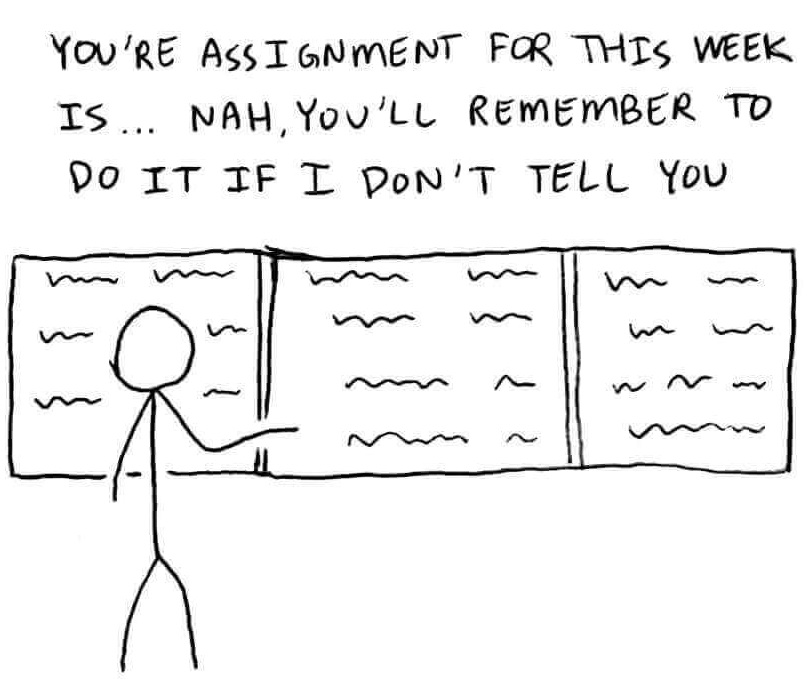 YOU'RE ASSIGNMENT FOR THIS WEEK
IS... NAH, YOU'LL REMEMBER TO
DO IT IF I DON'T TELL YOU